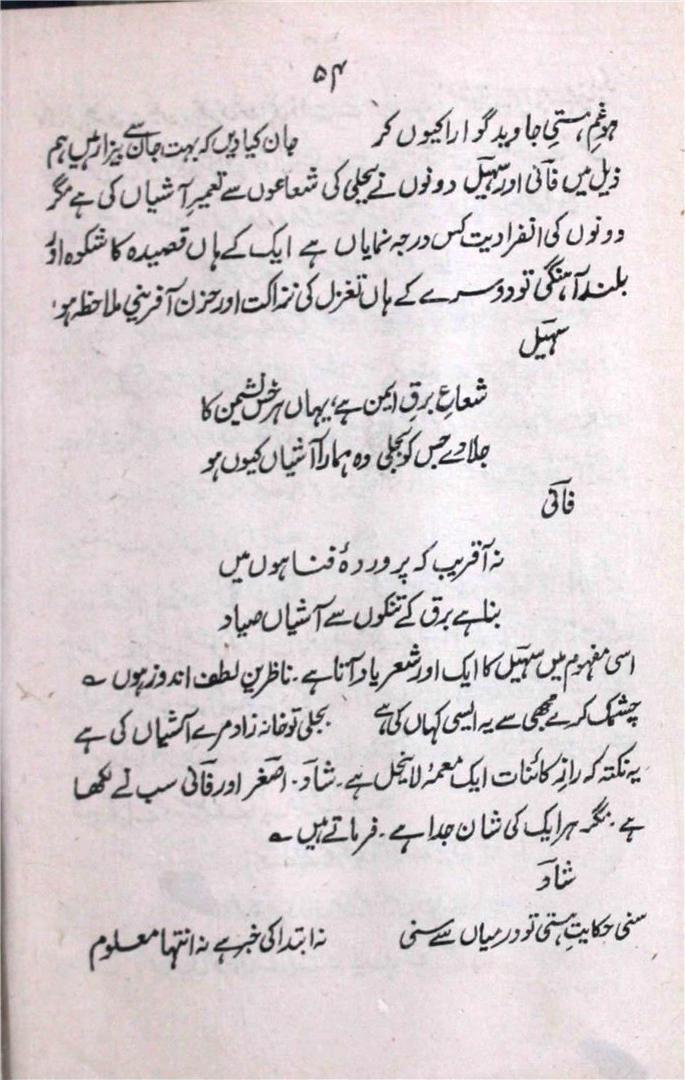 ۵۴
ہو غمِ ہستیِ جاوید گوارا کیوں کر جان کیا دیں کہ بہت جان سے بیزار ہیں ہم
ذیل میں فانی اور سہیل دونوں نے بجلی کی شعاعوں سے تعمیرِ آشیاں کی ہے مگر
دونوں کی انفرادیت کس درجہ نمایاں ہے ایک کے ہاں قصیدہ کا شکوہ اور
بلند آہنگی تو دوسرے کے ہاں تغزل کی نزاکت اور حزن آفرینی ملاحظہ ہو
سہیل
شعاعِ برقِ ایمن ہے، یہاں ہر خس نشیمن کا
جلا دے جس کو بجلی وہ ہمارا آشیاں کیوں ہو
فانی
نہ آ فریب کہ پروردۂ فنا ہوں میں
بنا ہے برق کے تنکوں سے آشیاں صیاد
اسی مفہوم میں سہیل کا ایک اور شعر یاد آتا ہے۔ ناظرین لطف اندوز ہوں ؎
چشمک کرے مجھی سے یہ ایسی کہاں کی ہے بجلی تو خانہ زاد مرے آشیاں کی ہے
یہ نکتہ کہ رازِ کائنات ایک معمۂ لاینحل ہے۔ شاد۔ اصغر اور فانی سب نے لکھا
ہے۔ مگر ہر ایک کی شان جدا ہے۔ فرماتے ہیں ؎
شاد
سنی حکایتِ ہستی تو درمیاں سے سنی نہ ابتدا کی خبر ہے نہ انتہا معلوم